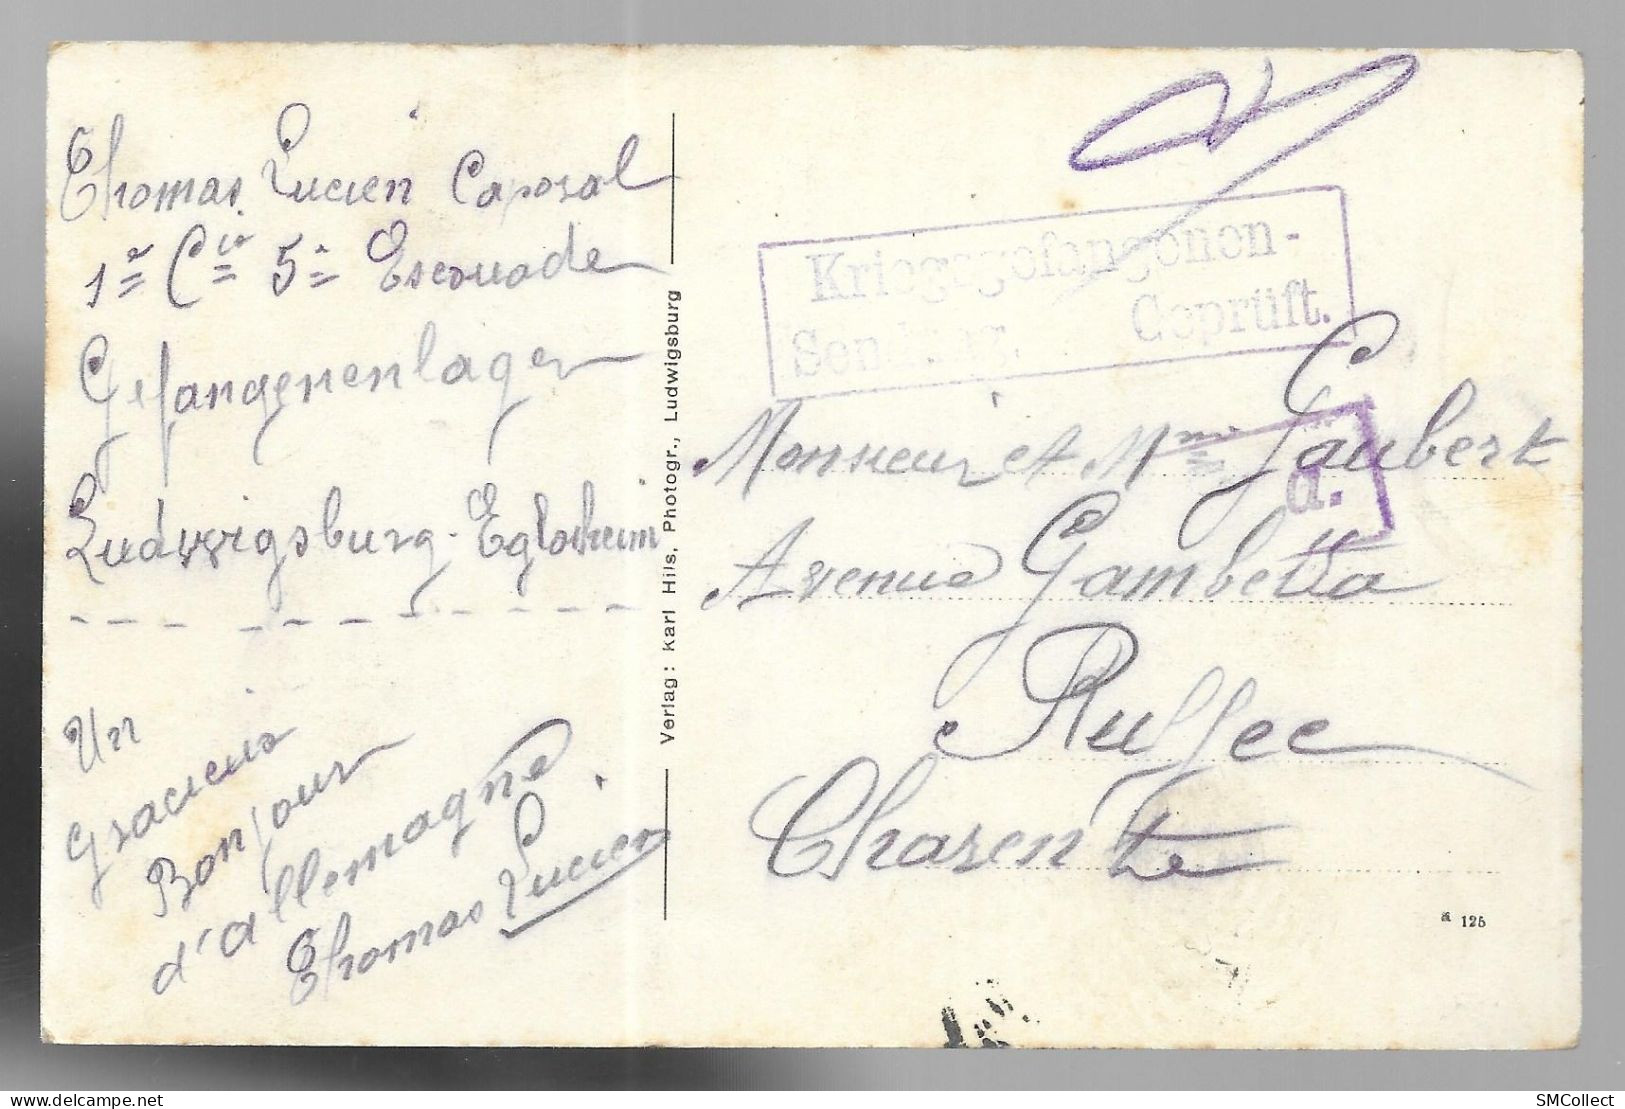 Thomas Lucien Caporal
1re Cie 5e Escouade
Gefangenenlager
Ludwigsburg-Eglosheim
Un
gracieux
Bonjour
d'allemagne
Thomas Lucien
Verlag: Karl Hils, Photogr., Ludwigsburg
Kriegsgefangenen-
Sendung. Geprüft.
Monsieur et Mme Gaubert
a.
Avenue Gambetta
Ruffec
Charente
a 125
SMCollect